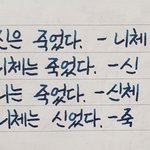 신은 죽었다. - 니체
니체는 죽었다. - 신
나는 죽었다. - 신체
니체는 신었다. - 죽